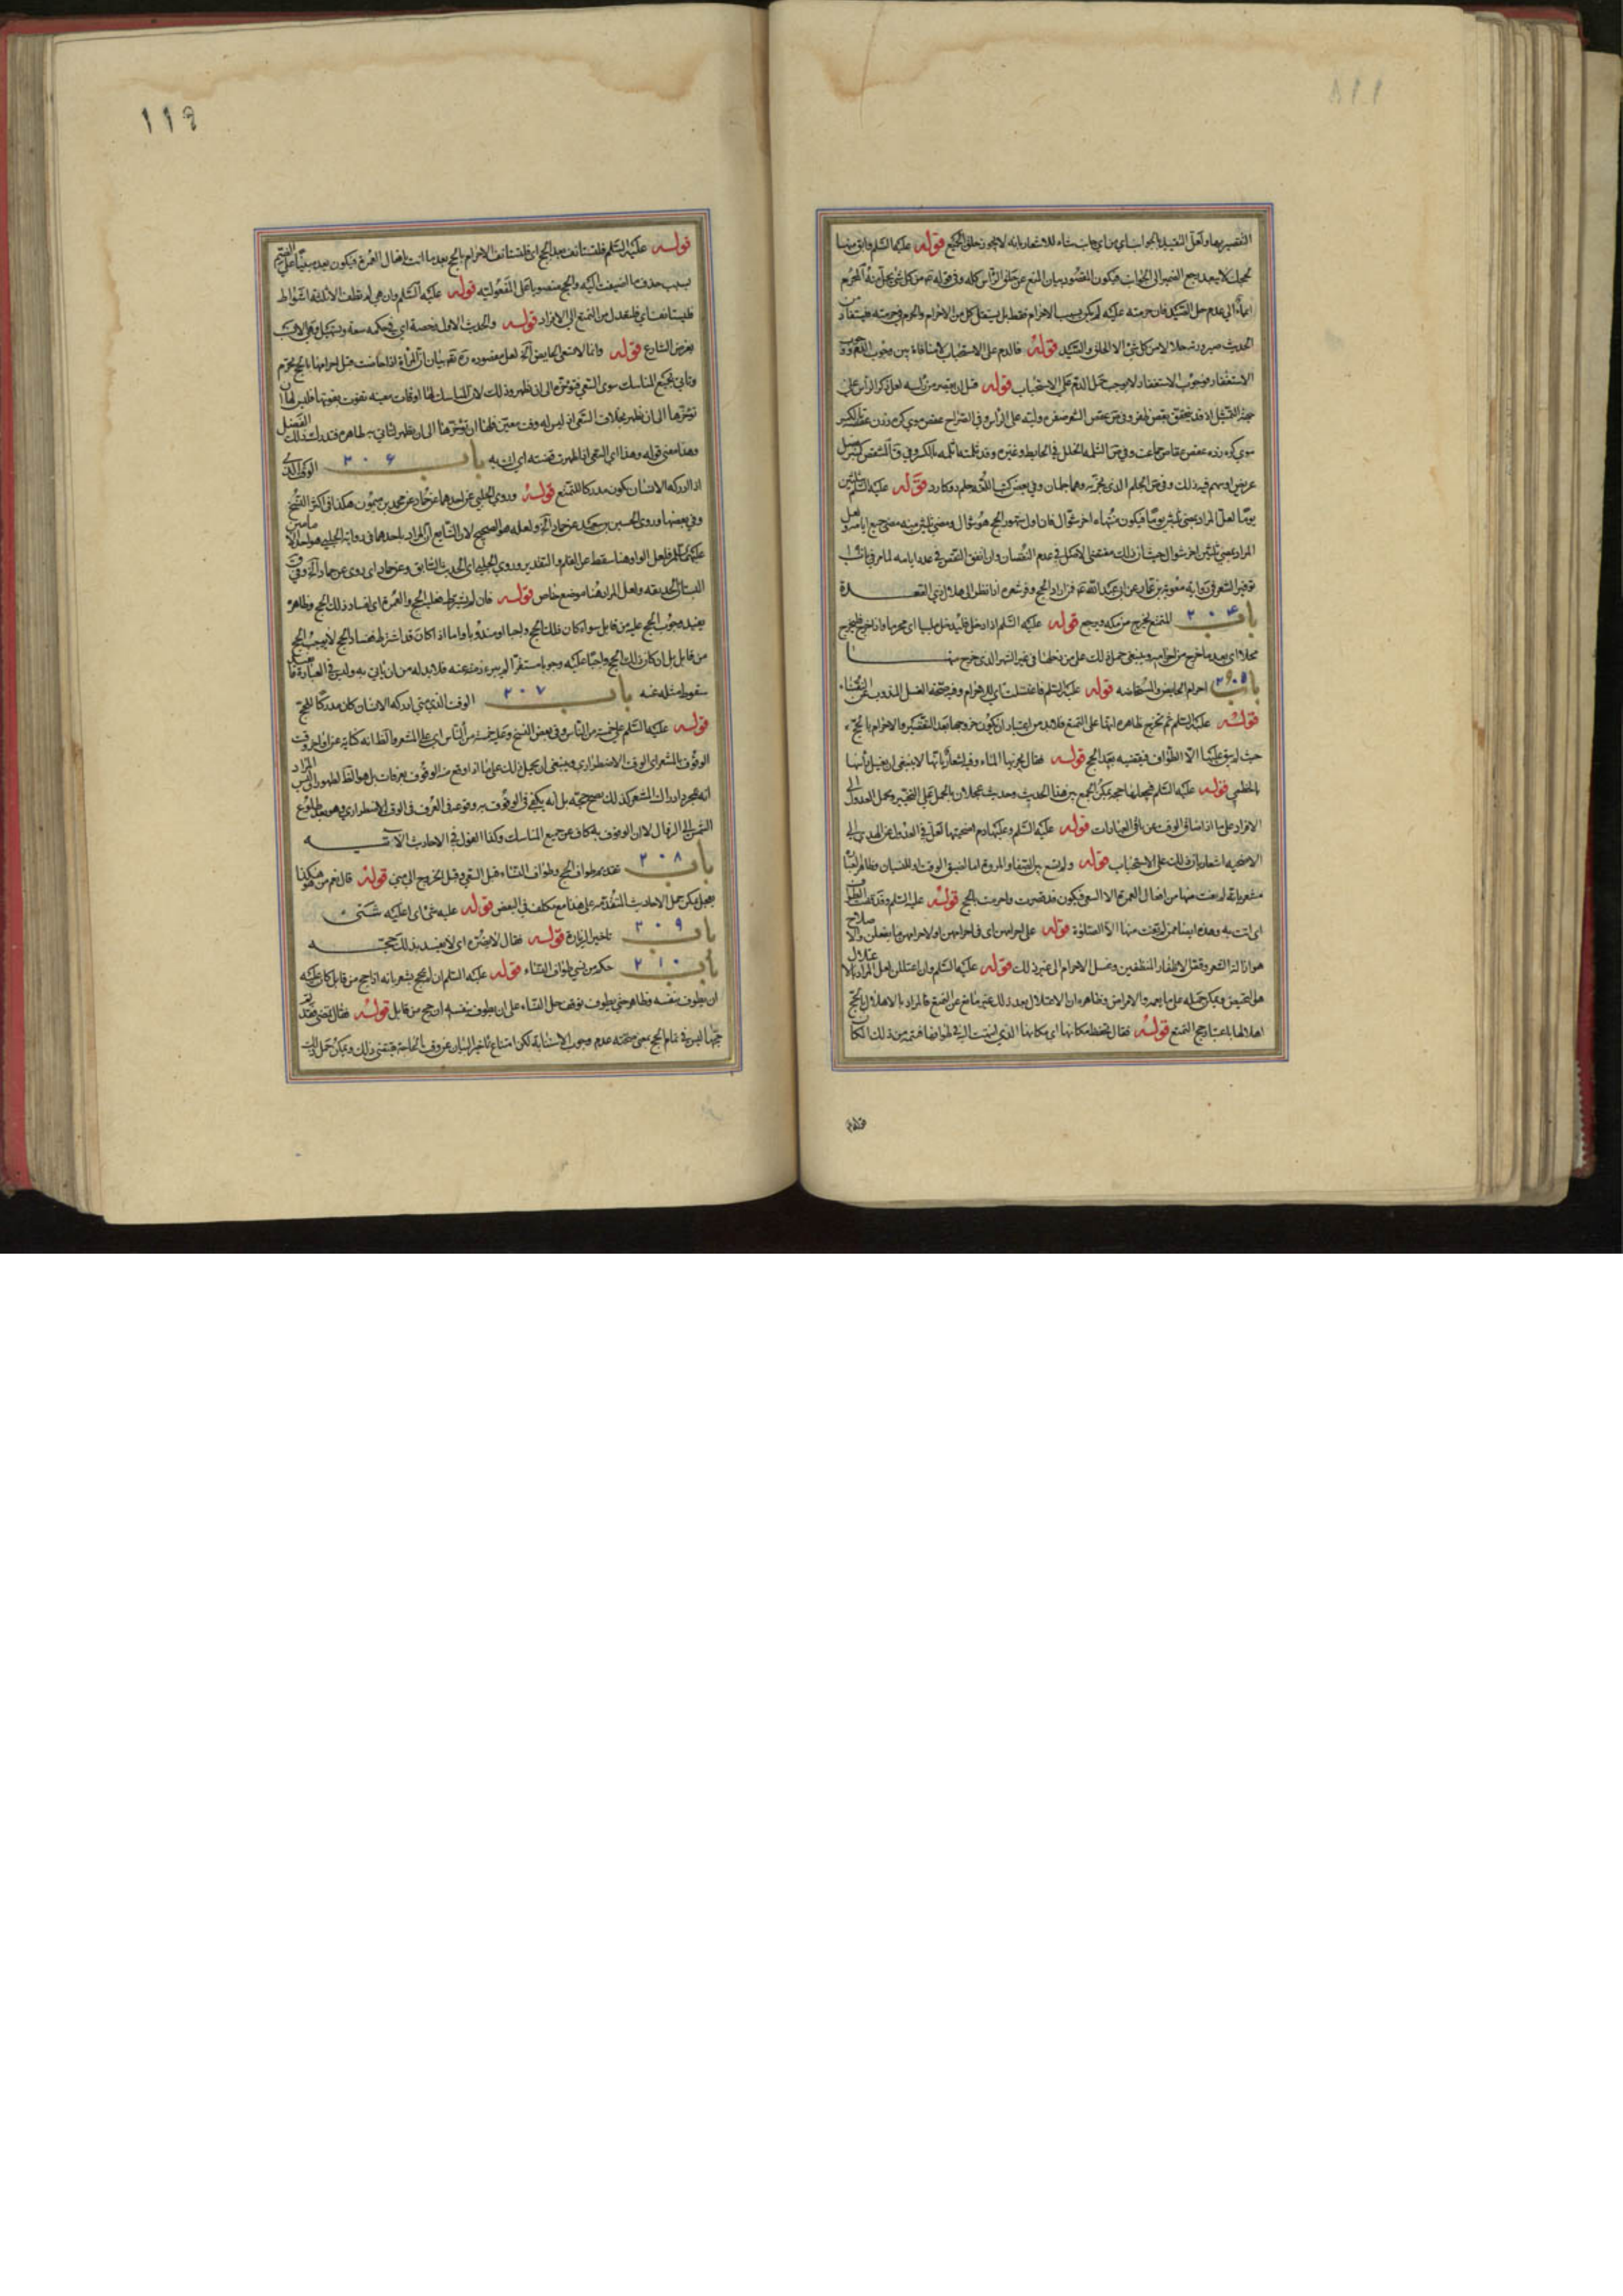 التقصير بها ولعل التقييد بالجوانب اي من اي جانب شاء للاشعار بانه لا يجوز حلق الجميع قوله عليها السلام وابق منها
لحجك لا يبعد رجع الضمير الى الجوانب فيكون المقصود بيان المنع عن حلق الراس كله وفي قوله من كل شئ يحل منه المحرم
ايماء الى عدم حل الصيد فان حرمته عليه لم يكن بسبب الاحرام فقط بل يستقل كل من الاحرام والحرم في حرمته فيستفاد من
الحديث صيرورته حلالا من كل شئ الا الحلق والصيد قوله فالدم على الاستحباب لا منافاة بين وجوب الدم ووجوب
الاستغفار فوجوب الاستغفار لا يوجب حمل الدم على الاستحباب قوله قبل ان يقصر من راسه لعل ذكر الراس على
جهة التمثيل اذ قد يتحقق بقص ظفر وفي عقص الشعر ضفره وليه على الراس وفي الصراح عقص موي
عريض او سهم فيه ذلك وفي الجلم الذي يجز به وهما جلمان وفي بعض كتب اللغة جلم دو كارد قوله عليه السلام ثلثين
يوما لعل المراد بمضي ثلثين يوما فيكون منتهاه اخر شوال فان اول شهور الحج هو شوال ومضي ثلثين منه مضي جميع ايامه ولعل
المراد بمضي ثلثين اخر شوال حيث ان ذلك مقتضى الاصل في عدم النقصان وان اتفق النقص في عدد ايامه لما مر في باب
توفير الشعر في رواية معوية بن عمار عن ابي عبد الله فمن اراد الحج وفر شعره اذا نظر الى هلال ذي القعدة
باب ٢٠٤ المتمتع يخرج من مكه ويرجع قوله عليه السلام اذا دخل فليدخل ملبيا اي محرما واذا خرج فليخرج
محلا اي بعد ما خرج من احرامه وينبغي حمل ذلك على من دخلها في غير الشهر الذي خرج منها
باب ٢٠٥ احرام الحايض والمستحاضه قوله عليه السلام فاغتسلت اي للاحرام وفيه صحة الغسل المندوب من النفساء
قوله عليه السلام ثم تخرج ظاهره انها على التمتع فلا بد من اعتبار ان يكون خروجها بعد التقصير والاحرام بالحج
حيث لم يبق عليها الا الطواف فتقضيه بعد الحج قوله فقال يجزيها الماء وفيه اشعار بانها لا ينبغي ان يغسل راسها
بالخطمي قوله عليه السلام فيجعلها حجة يمكن الجمع بين هذا الحديث وحديث عجلان بالحمل على التخيير وبحمل العدول الى
الافراد على ما اذا ضاق الوقت عن باقي العبارات قوله عليه السلام وعليها دم اضحيتها لعل في العدول عن الهدي الى
الاضحيه اشعار بان ذلك على الاستحباب قوله ولم تسع بين الصفا والمروة اما لضيق الوقت او للنسيان وظاهر العبارة
مشعر بانه لم يفت منها من افعال العمرة الا السعي فيكون قد قصرت واحرمت بالحج قوله عليه السلام وقد قضت الطواف
اي اتت به وهذه ايضا ممن لم يفت منها الا الصلوة قوله على احرامهن اي في احرامهن او لاحرامهن ما يفعلن والاصلاح
هو ازالة الشعر وقتل الاظفار المنظفين وغسل الاحرام الى غير ذلك قوله عليه السلام وان اعتللن لعل المراد بالاعتلال
هو الحيض ويمكن حمله على ما يعمه والامراض وظاهره ان الاعتلال بعد ذلك غير مانع عن التمتع فالمراد بالاهلال بالحج
اهلالها باعتبار حج التمتع قوله فقال تحفظ مكانها اي مكانها الذي انتهت اليه في طوافها فتتمه من ذلك المكان
قوله
١١٩
قوله عليه السلام فلتستانف بعد الحج اي فلتستانف الاحرام بالحج بعد ما اتت بافعال العمرة فيكون بعد مبنيا على الضم
بسبب حذف ما اضيفت اليه والحج منصوبا على المفعولية قوله عليه السلام وان هي لم تطف الا ثلثة اشواط
فليستانف اي فلتعدل من التمتع الى الافراد قوله والحديث الاول رخصة اي في حكمه سعة وتسهيل وقع الامر
بغرض الشارع قوله وانما لا تسعى الحايض آه لعل مقصوده ره بيان ان المراة اذا حاضت قبل احرامها بالحج تحرم
وتاتي بجميع المناسك سوى السعي فتؤخره الى ان تطهر وذلك لان المناسك لها اوقات معينة تفوت بفوتها فليس لها ان
تؤخرها الى ان تطهر بخلاف السعي اذ ليس له وقت معين فلها ان تؤخرها الى ان تطهر لتاتي به طاهرة فتدرك بذلك الفضل
وهذا معنى قوله وهذا اي السعي اذا طهرت قضته اي اتت به باب ٢٠٦ الوقت الذي
اذا ادركه الانسان يكون مدركا للتمتع قوله وروى الحلبي عن احدهما عن حماد عن محمد بن ميمون هكذا في اكثر النسخ
وفي بعضها وروى الحسين بن سعيد عن حماد آه ولعله هو الصحيح لان الشايع ان المراد باحدهما في رواية الحلبي هو احد الامامين
عليهما السلام فلعل الواو هنا سقط عن القلم والتقدير وروى الحلبي اي الحديث السابق وعن حماد اي روى عن حماد آه وفي
البستان الحديقه ولعل المراد هنا موضع خاص قوله فان لم يشترط فعليه الحج والعمرة اي لفساد ذلك الحج وظاهره
يفيد وجوب الحج عليه من قابل سواء كان ذلك الحج واجبا او مندوبا واما اذا كان قد اشترط ففساد الحج لا يوجب الحج
من قابل بل ان كان ذلك الحج واجبا عليه وجوبا مستقرا لم يبرء ذمته عنه فلا بد له من ان ياتي به وليس في العبارة ما يفيد
سقوط مثله عنه باب ٢٠٧ الوقت الذي متى ادركه الانسان كان مدركا للحج
قوله عليه السلام على خمسة من الناس وفي بعض النسخ وعليه خمسة من الناس اي على المشعر والظ انه كناية عن اواخر وقت
الوقوف بالمشعر اي الوقت الاضطراري وينبغي ان يحمل ذلك على ما اذا وقع منه الوقوف بعرفات بل هو الظ لظهور ان ليس المراد
انه بمجرد ادراك المشعر كذلك صح حجه بل انه يكفي في الوقوف به وقوعه في العرف في الوقت الاضطراري وهو بعد طلوع
الشمس الى الزوال لا ان الوقوف به كاف عن جميع المناسك وكذا القول في الاحاديث الاتيه
باب ٢٠٨ تقديم طواف الحج وطواف النساء قبل السعي وقبل الخروج الى منى قوله قال نعم من هو هكذا
يعجل يمكن حمل الاحاديث المتقدمة على هذا مع تكلف في البعض قوله عليه شئ اي اعليه شئ
باب ٢٠٩ تاخير الزيارة قوله فقال لا يضره اي لا يفسد بذلك حجه
باب ٢١٠ حكم من نسي طواف النساء قوله عليه السلام ان لم يحج يشعر بانه اذا حج من قابل كان عليه
ان يطوف بنفسه وظاهر حتى يطوف توقف حل النساء على ان يطوف بنفسه ان حج من قابل قوله فقال يقضي فقد تم
حجها ليس في تمام الحج بمعنى صحته عدم وجوب الاستنابة لكن امتناع تاخير البيان عن وقت الحاجة يقتضي ذلك ويمكن حمل ذلك